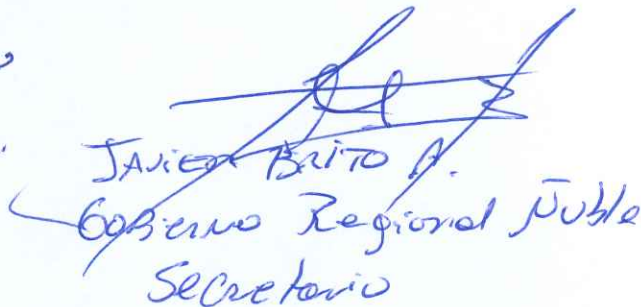 JAVIER BRITO A.
Gobierno Regional Ñuble
Secretario